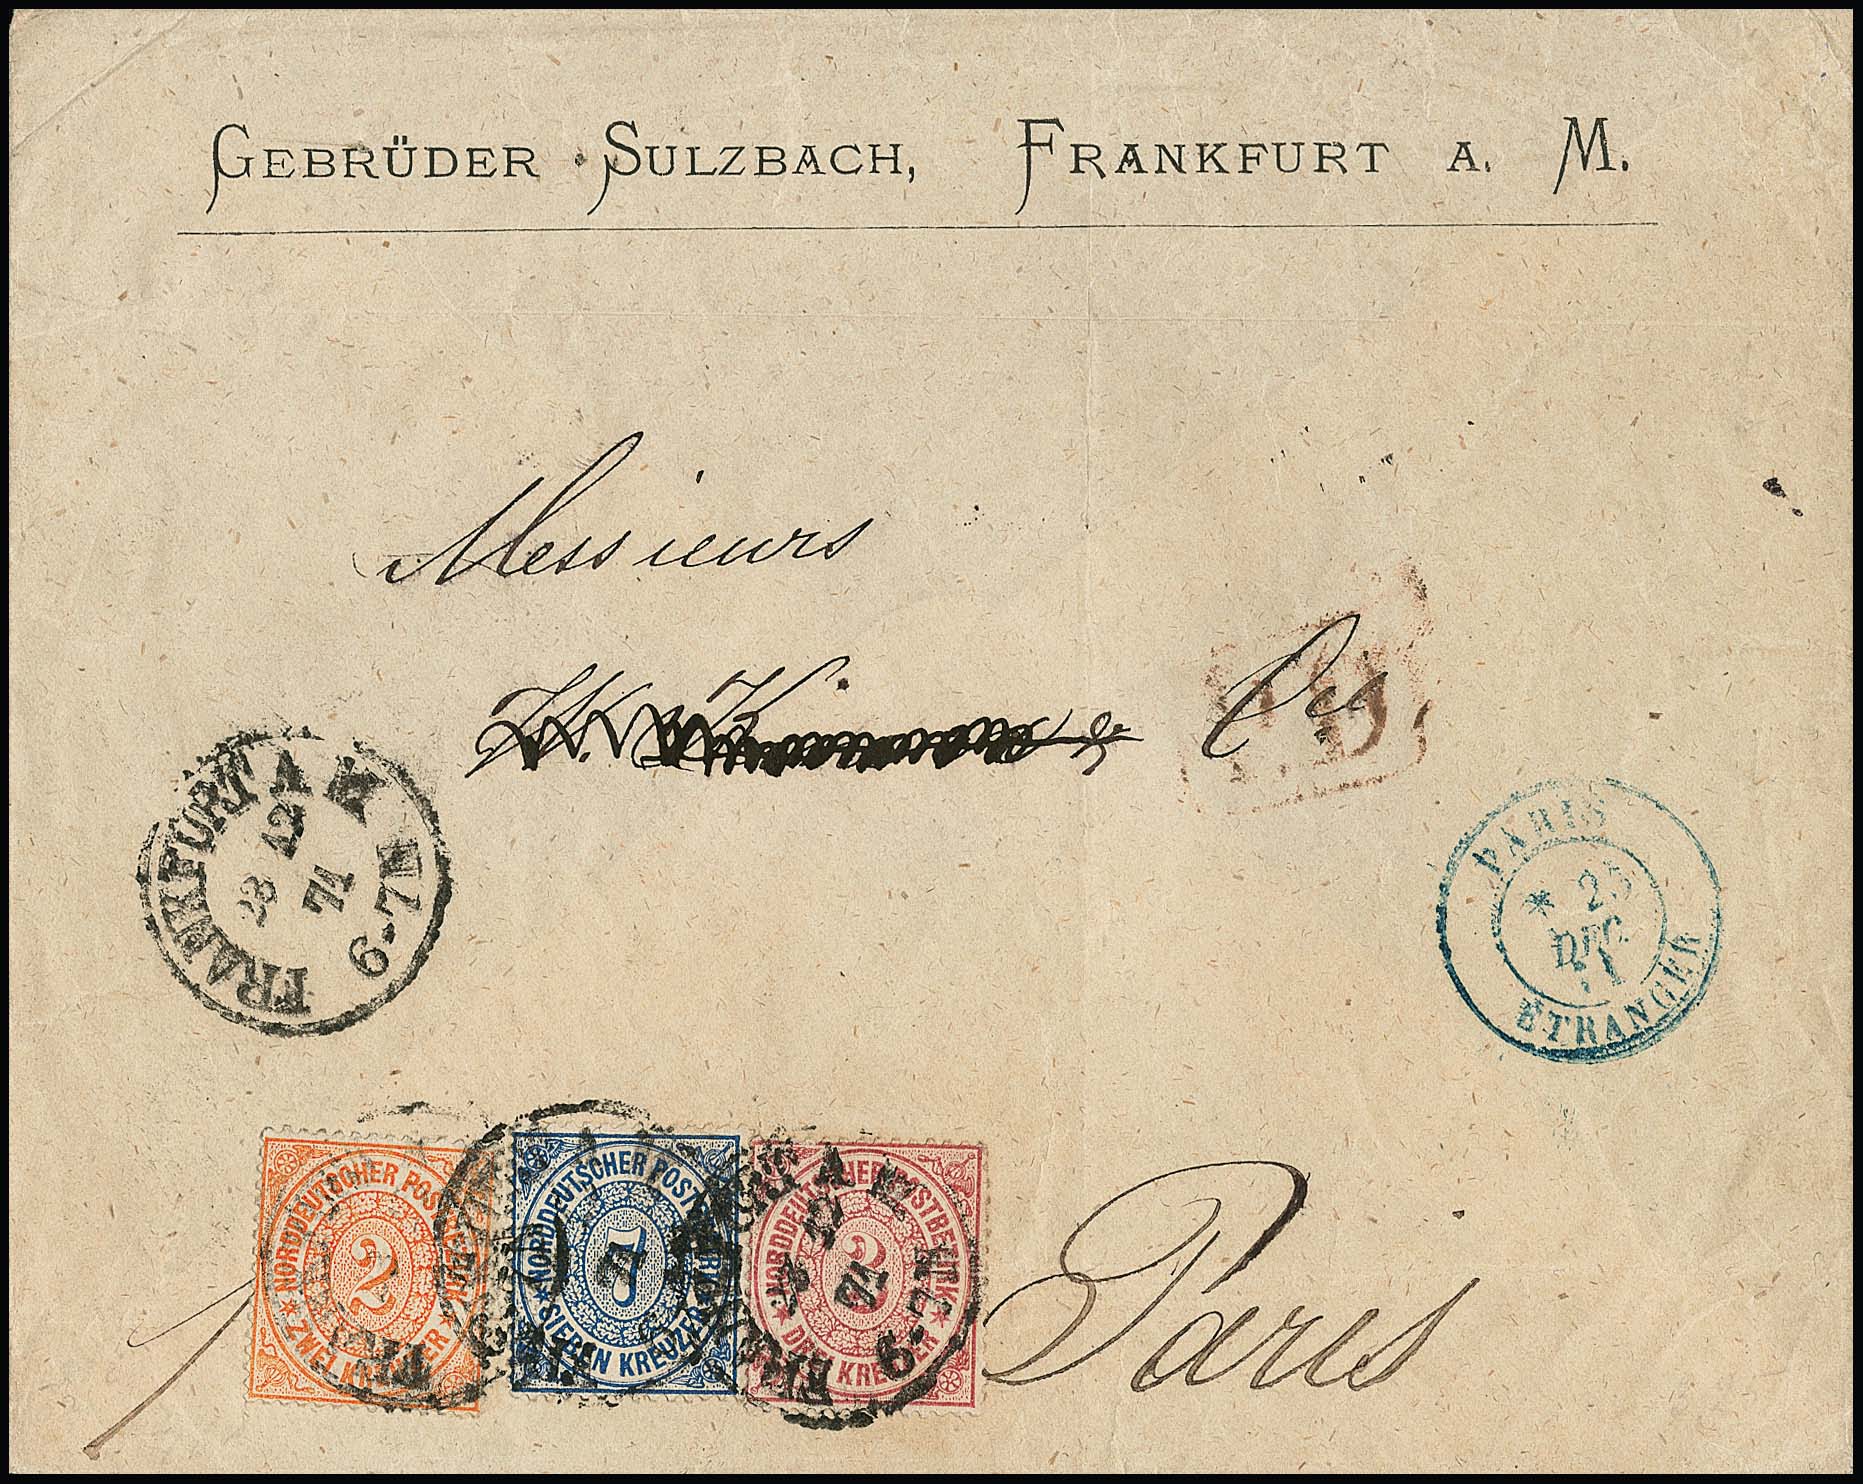 GEBRÜDER SULZBACH, FRANKFURT A. M.
Messieurs
& Cie
P.D.
FRANKFURT A M
23 12
71
6-7N
PARIS
* 25
DEC.
71
ÉTRANGER
NORDDEUTSCHER POSTBEZIRK
2
ZWEI KREUZER
NORDDEUTSCHER POSTBEZIRK
7
SIEBEN KREUZER
NORDDEUTSCHER POSTBEZIRK
3
DREI KREUZER
12
71
Paris